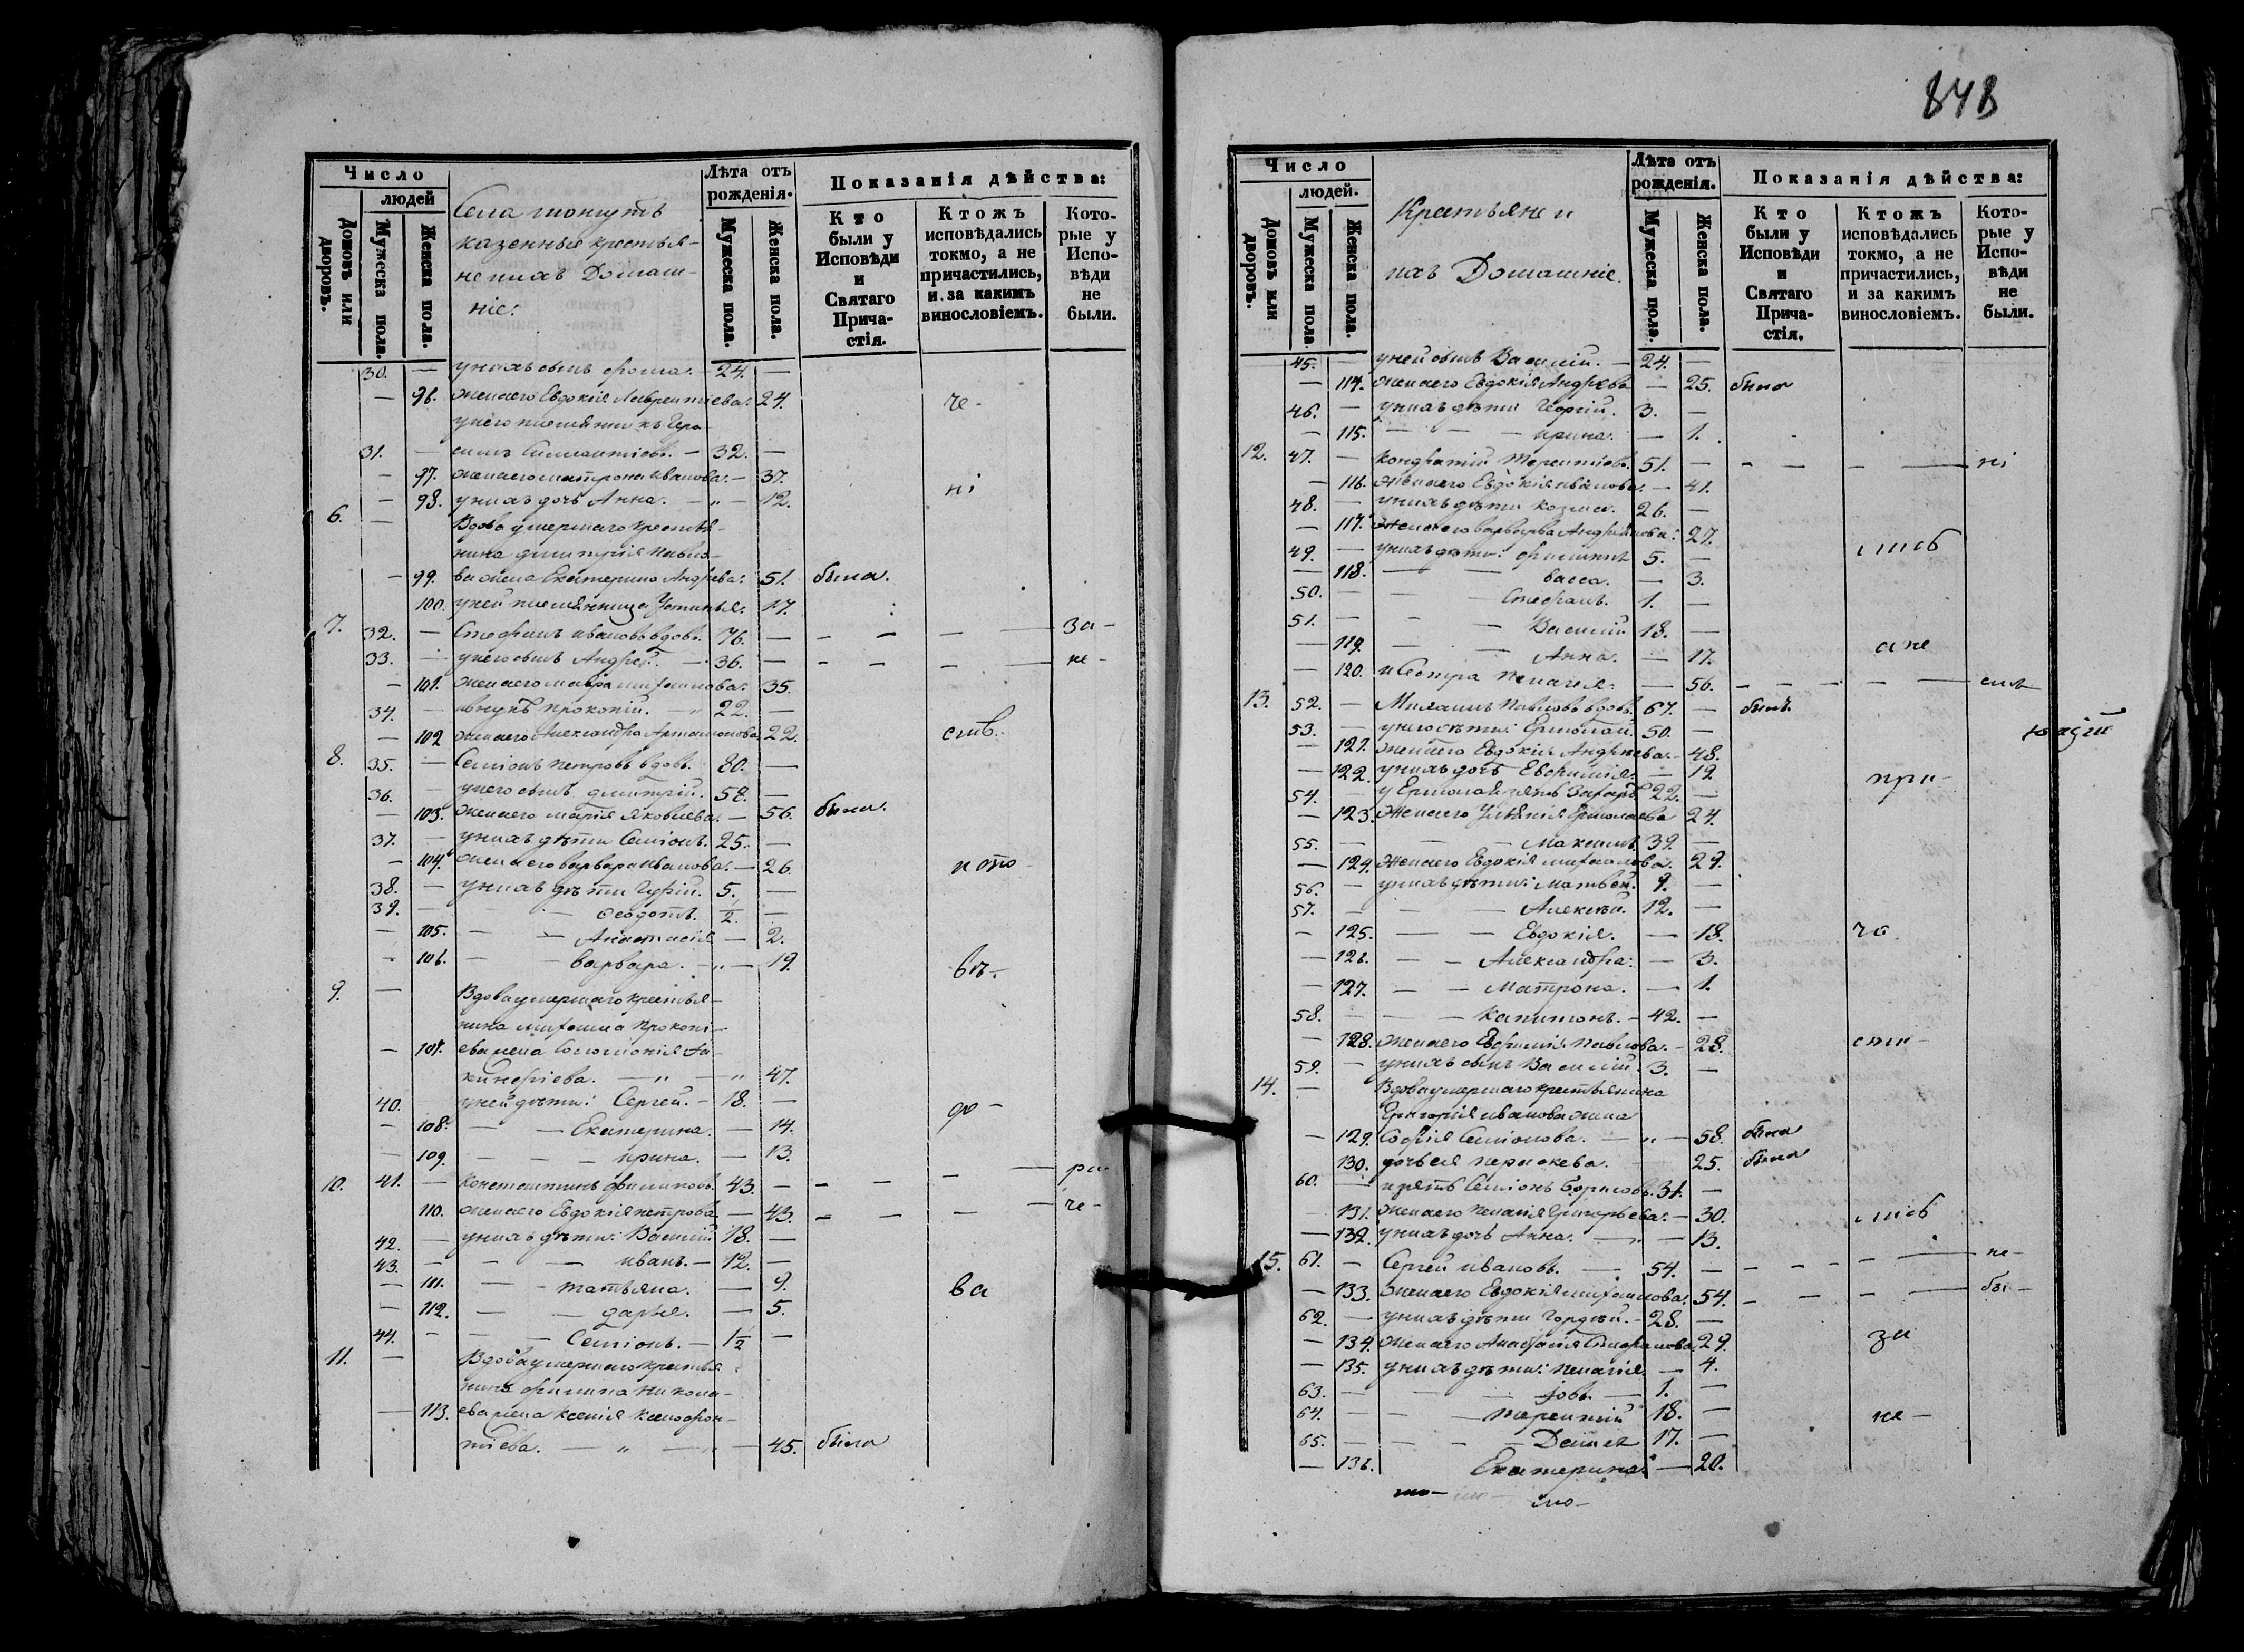 Число
людей
Домовъ или дворовъ.
Мужеска пола.
Женска пола.
Села
казенныя крестья-
не и ихъ Домаш-
ніе:
Лѣта отъ рожденія.
Мужеска пола.
Женска пола.
Показанія дѣйства:
Кто были у Исповѣди и Святаго Прича-стія.
Ктожъ исповѣдались токмо, а не причастились, и за какимъ винословіемъ.
Кото-рые у Испо-вѣди не были.
30. — у нихъ сынъ Фома. — 24. —
— 96. жена его Евдокія Лаврентіева. 24. че-
у него племянникъ Гера-
31. — симъ — 32. —
— 97. жена его Матрона Иванова. — 37.
— 98. у нихъ дочь Анна. — „ — 12. ні
6. — Вдова умершаго крестья-
нина Димитрія Павло-
— 99. ва жена Екатерина Андрева. 51. была.
100. у ней племянница Устинья. 17.
7. 32. — Стефанъ Ивановъ вдовъ. 76. — — — — за-
33. — у него сынъ Андрей. — 36. — — — — не-
— 101. жена его Мавра Михаилова. 35.
34. — внукъ Прокопій. — „ 22. —
— 102 жена его Александра Артамонова. 22. ств.
8. 35. — Семіонъ Петровъ вдовъ. 80. —
36. — у него сынъ Димитрій. 58. —
— 103. жена его Марія Яковлева. — 56. была.
37. — у нихъ дѣти Семіонъ. 25. —
— 104. жена его Варвара Иванова. — 26. и ото
38. — у нихъ дѣти Гурій. 5. —
39. — — Ѳеодотъ. 1/2. —
— 105. — — Анастасія — 2.
— 106. — — Варвара. — „ — 19. въ-
9. — Вдова умершаго крестья-
нина Михаила Прокопі-
— 107. ева жена Соломонія Ан-
— „ — „ 47.
40. — у ней дѣти: Сергей. — 18. —
— 108. — — Екатерина. — 14.
— 109. — — — Ирина. — 13.
10. 41. — Константинъ Филиповъ. 43. — — — — ра-
110. жена его Евдокія Петрова. — 43. — — — че-
42. — у нихъ дѣти: Василій 18. —
43. — — — Иванъ. — 12. —
— 111. — — Татьяна. — 9. ва
— 112. — — Дарья. — 5.
44. — — — Семіонъ. — 1 1/2 —
11. — Вдова умершаго крестья-
нина Филипа Никола-
— 113. ева жена Ксенія Ксенофон-
тіева. — „ — „ — 45. была
848
Число
людей.
Домовъ или дворовъ.
Мужеска пола
Женска пола.
Крестьяне и
ихъ Домашніе.
Лѣта отъ рожденія.
Мужеска пола.
Женска пола.
Показанія дѣйства:
Кто были у Исповѣди и Святаго Прича-стія.
Ктожъ исповѣдались токмо, а не причастились, и за какимъ винословіемъ.
Кото-рые у Испо-вѣди не были.
45. — у ней сынъ Василій. — 24. —
— 114. жена его Евдокія Андрева — 25. была
46. — у нихъ дѣти Георгій. 3. —
— 115. — — — Ирина. — 1.
12. 47. — Кондратій Терентіевъ. 51. — — — — ні
— 116. жена его Евдокія Иванова. — 41.
48. — у нихъ дѣти Козма. 26. —
— 117. жена его Варвара 27.
49. — у нихъ дѣти: Филиппъ 5. —
— 118. — — Васса. — 3.
50. — — — Стефанъ. 1. —
51. — — — Василій 18. —
— 119. — — Анна. — 17. а не
— 120. и Сестра Пелагія. — 56. — — —
13. 52. — Михаилъ Павловъ вдовъ. 67. — былъ.
53. — у него дѣти: Ермолай. 50. —
— 121. жена его Евдокія Андреева. — 48.
— 122. у нихъ дочь Евфимія. — 12 при-
54. — у Ермолая зять Захаръ 22. —
— 123. Жена его Ермолаева 24.
55. — — — Максимъ 39. —
— 124. жена его Евдокія Михаилова. 29.
56. — у нихъ дѣти: Матвей. 9. —
57. — — — Алексѣй. 12. —
— 125. — — Евдокія. — 18. ча
— 126. — — Александра. — 3.
— 127. — — Матрона. — 1.
58. — — — Капитонъ. — 42. —
— 128. жена его Евфимія Павлова. — 28. сти-
59. — у нихъ сынъ Василій. 3. —
14. — Вдова умершаго крестьянина
Григорія Иванова жена
— 129. Софія Семіонова. — „ — 58. была
130. дочь ея Параскева. 25. была
60. — и зять Семіонъ Борисовъ. 31. —
131. жена его Пелагія Григорьева. — 30.
— 132. у нихъ дочь Анна. — 13.
15. 61. — Сергей Ивановъ. — 54. — — — — не-
— 133. жена его Евдокія Михаилова. 54. — — — бы-
62. — у нихъ дѣти Гордѣй. — 28. —
— 134. жена его Стефанова. 29. за
— 135. у нихъ дѣти: Пелагія. — 4.
63. — — — Іовъ. — 1. —
64. — — — Терентій 18. — не-
65. — — — Даніилъ 17. —
— 136. Екатерина. — 20.